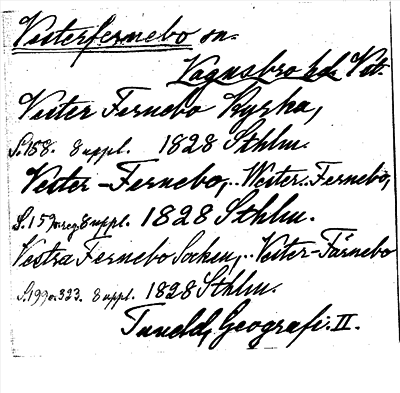 Vesterfernebo sn.
Vagnsbro hd Vstm.
Vester Fernebo Kyrka,
S. 158. 8 uppl. 1828 Sthlm.
Vester-Fernebo,.. Wester.. Fernebo,
S. 159 o. reg. 8 uppl. 1828 Sthlm.
Vestra Fernebo Socken,.. Vester-Färnebo
S. 199 o. 323. 8 uppl. 1828 Sthlm.
Tuneld, Geografi. II.